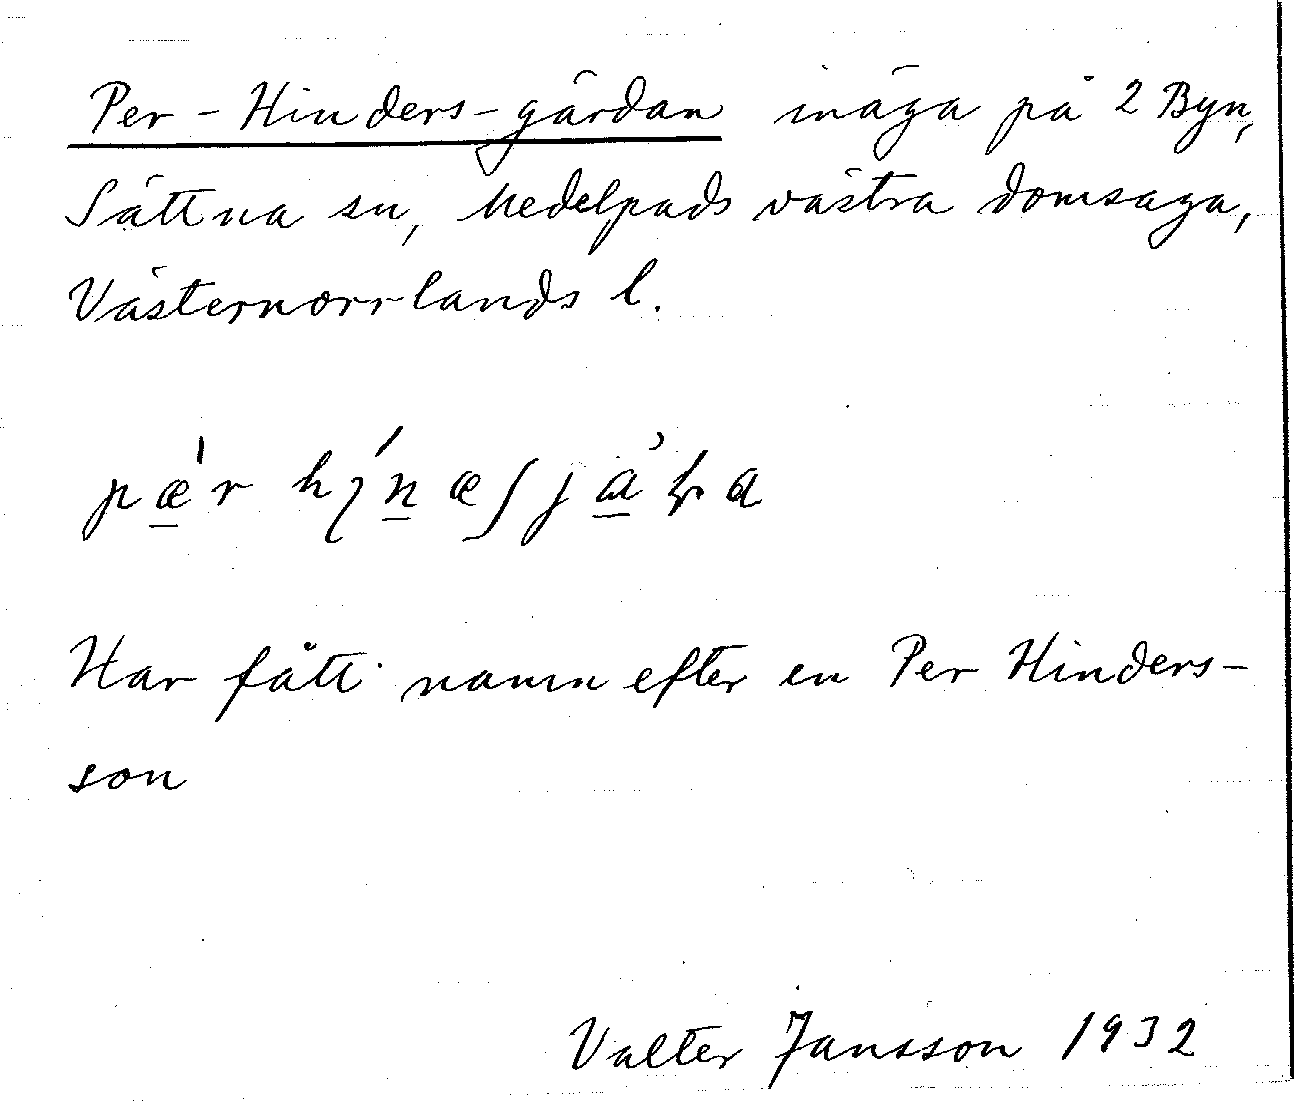 Per-Hinders-gärdan inäga på 2 Byn,
Sättna sn, Medelpads västra domsaga,
Västernorrlands l.
Har fått namn efter en Per Hinders-
son
Valter Jansson 1932